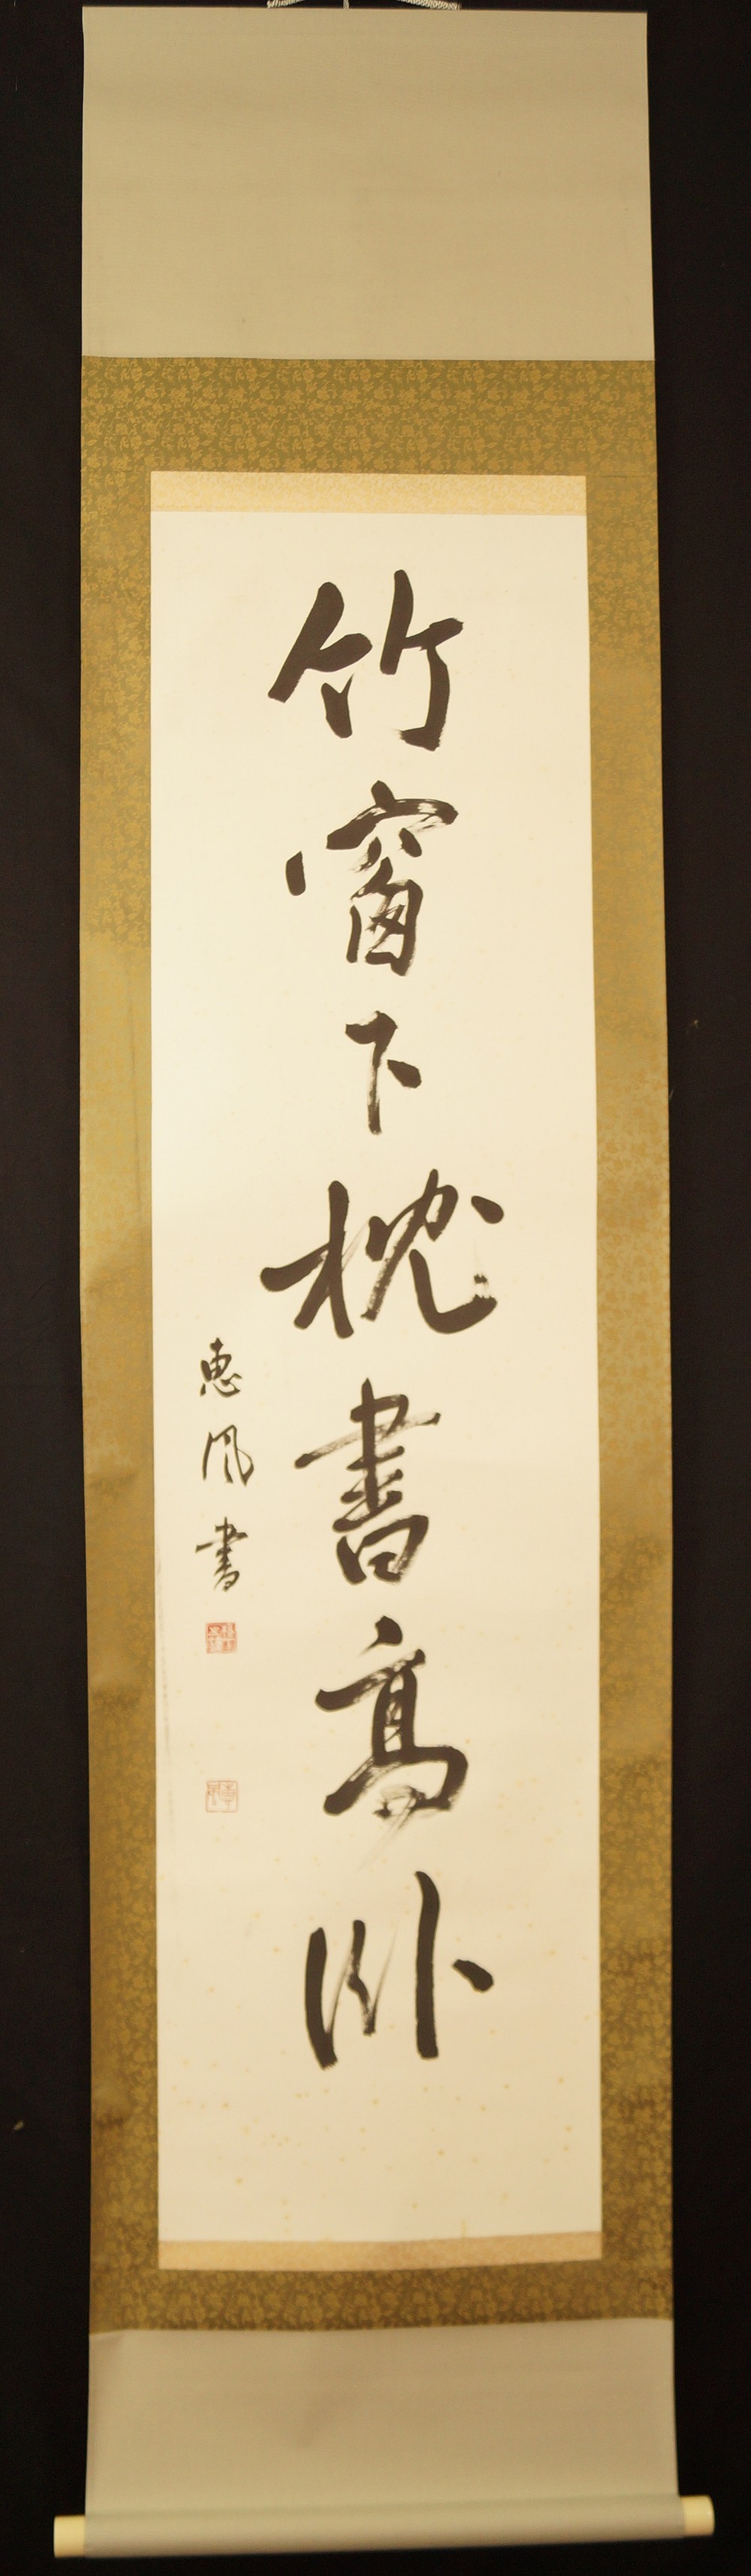 竹窗下枕書高臥
恵風書